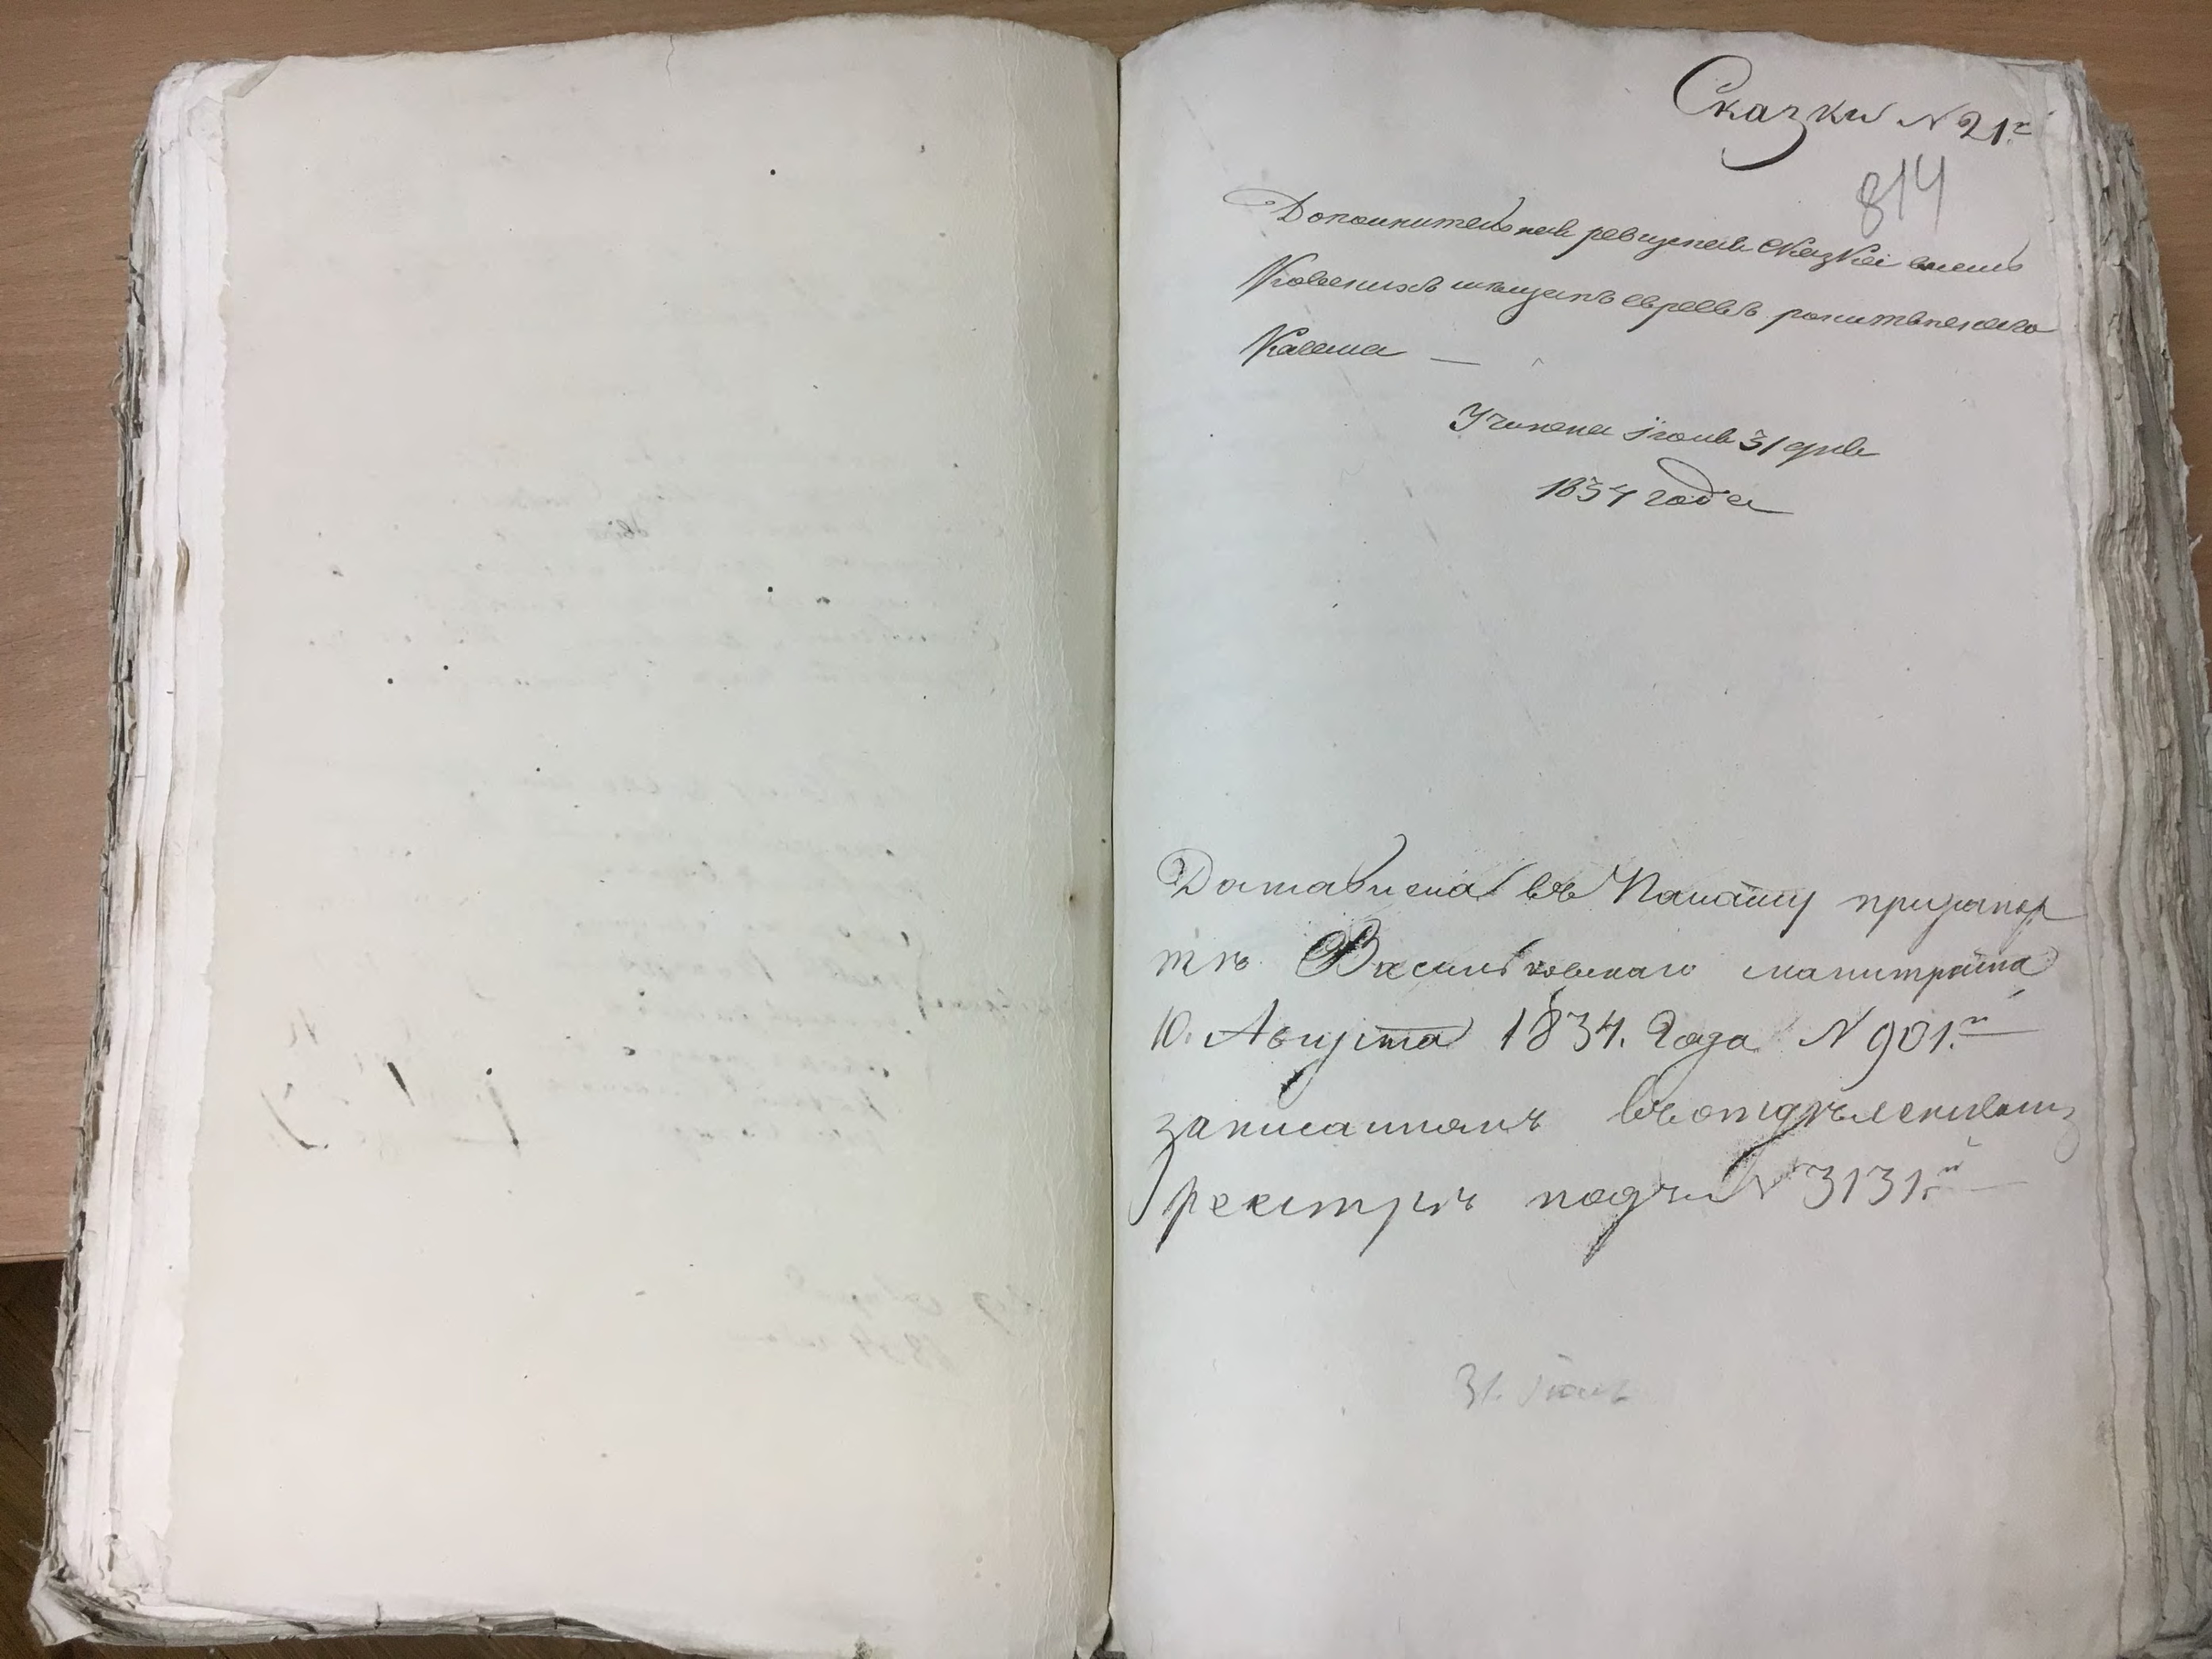 Сказки N 21й
814
Дополнительная ревизская сказка василь
ковскихъ мещанъ евреевъ рокитянского
Кагала —
Учинена іюля 31 дня
1834 года
Доставлена въ Палату при рапор
тѣ Васильковскаго магистрата
10. Августа 1834. Года N 901.м
записанномъ въ отдѣленскомъ
реестрѣ подъ N 3131.м
31. Іюля